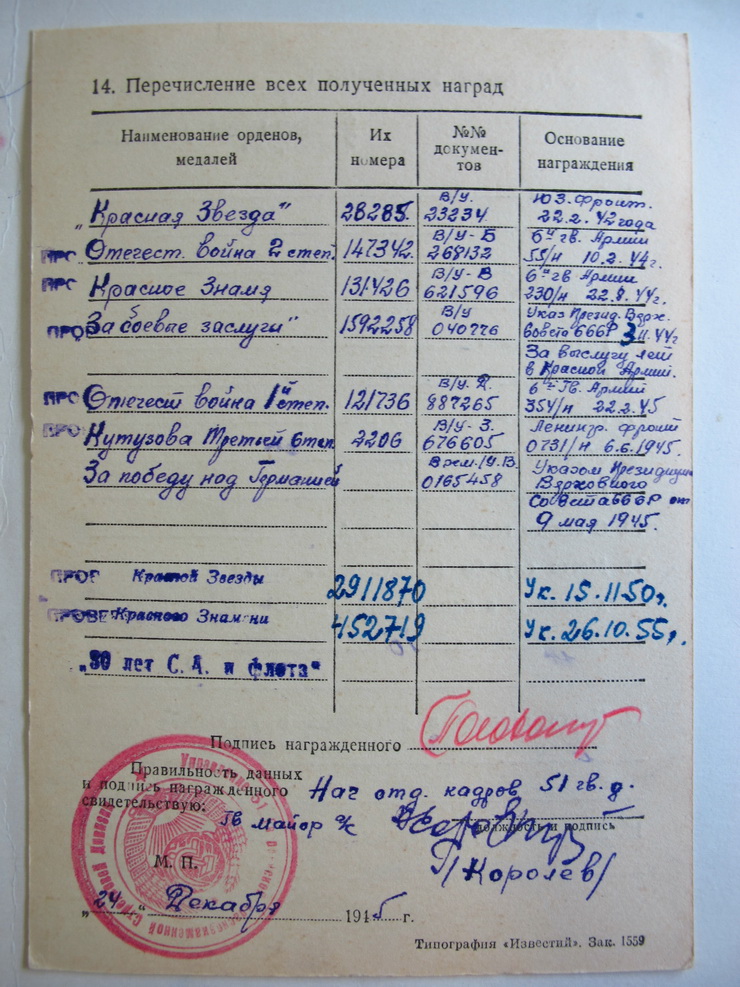 14. Перечисление всех полученных наград
Наименование орденов, медалей
Их номера
№№ документов
Основание награждения
„Красная Звезда" 28285. В/У. 23234 Юз. Фронт. 22.2. 42 года
ПРО Отечест. война 2 степ. 147342. В/У-Б 268132 6ой гв. Армии 55/н 10.2.44 г.
ПРС Красное Знамя 131426 В/У-В 621596 6ой гв Армии 230/н 22.8.44 г.
ПРОВ „За боевые заслуги" 1592258 В/У 040776 Указ Презид. Верх. Совета СССР 3 11.44 г
За выслугу лет в Красной Армии.
ПРО Отечест война 1й степ. 121736 В/У. Д. 887265 6ой Гв. Армии 354/н 22.2.45
ПРО Кутузова Третьей степ. 2206 В/У-З. 676605 Ленингр. фронт 0731/н 6.6.1945.
За победу над Германией Врем./У.В. 0165458 Указом Президиума Верховного Совета СССР от 9 мая 1945.
ПРОГ Красной Звезды 2911870 Ук. 15.11.50 г.
ПРОВЕ Красного Знамени 452719 Ук. 26.10.55 г.
„30 лет С. А. и флота"
Подпись награжденного
Правильность данных
и подпись награжденного
свидетельствую:
Нач отд. кадров 51 гв. д.
Гв майор а/с
должность и подпись
/Королев/
М. П.
„24" Декабря 1945 г.
Типография «Известий». Зак. 1559